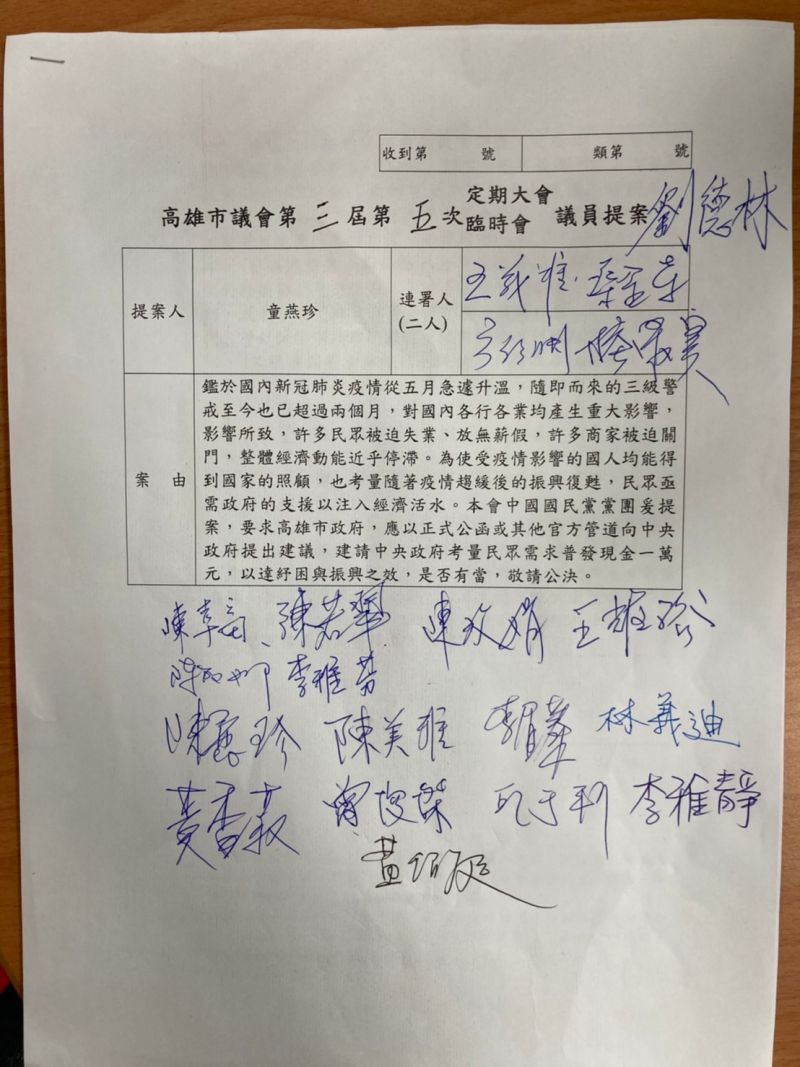 收到第 號 類第 號
高雄市議會第三屆第五次 定期大會 臨時會 議員提案 劉德林
提案人 童燕珍 連署人(二人) 王義雄
案由
鑑於國內新冠肺炎疫情從五月急遽升溫，隨即而來的三級警
戒至今也已超過兩個月，對國內各行各業均產生重大影響，
影響所致，許多民眾被迫失業、放無薪假，許多商家被迫關
門，整體經濟動能近乎停滯。為使受疫情影響的國人均能得
到國家的照顧，也考量隨著疫情趨緩後的振興復甦，民眾亟
需政府的支援以注入經濟活水。本會中國國民黨黨團爰提
案，要求高雄市政府，應以正式公函或其他官方管道向中央
政府提出建議，建請中央政府考量民眾需求普發現金一萬
元，以達紓困與振興之效，是否有當，敬請公決。
陳若翠 陳玫娟
李雅芬
陳麗珍 陳美雅 林義迪
黃香菽 曾俊傑 李雅靜